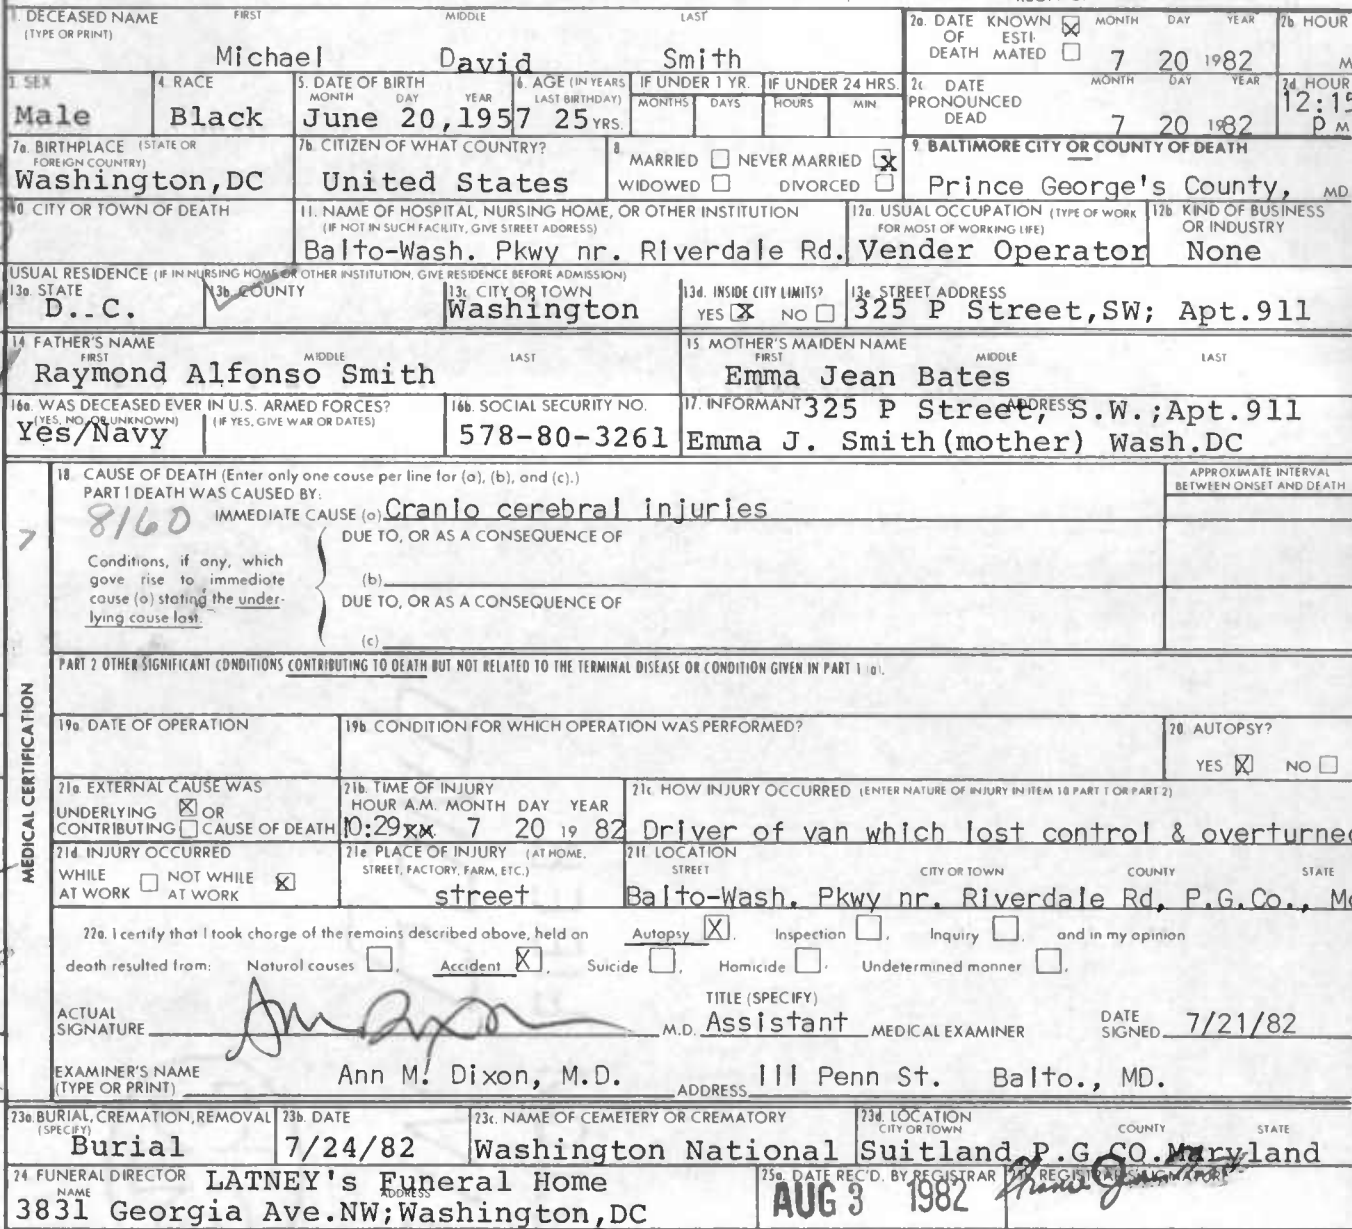 1. DECEASED NAME FIRST MIDDLE LAST
(TYPE OR PRINT)
Michael David Smith
2a. DATE OF DEATH KNOWN ☒ ESTI-MATED ☐ MONTH DAY YEAR
7 20 1982
2b. HOUR
M
3. SEX
Male
4. RACE
Black
5. DATE OF BIRTH
MONTH DAY YEAR
June 20,1957
6. AGE (IN YEARS LAST BIRTHDAY)
25 YRS.
IF UNDER 1 YR. IF UNDER 24 HRS.
MONTHS DAYS HOURS MIN
2c. DATE PRONOUNCED DEAD MONTH DAY YEAR
7 20 1982
2d. HOUR
12:15
P M
7a. BIRTHPLACE (STATE OR FOREIGN COUNTRY)
Washington,DC
7b. CITIZEN OF WHAT COUNTRY?
United States
8. MARRIED ☐ NEVER MARRIED ☒
WIDOWED ☐ DIVORCED ☐
9. BALTIMORE CITY OR COUNTY OF DEATH
Prince George's County, MD
10. CITY OR TOWN OF DEATH
11. NAME OF HOSPITAL, NURSING HOME, OR OTHER INSTITUTION
(IF NOT IN SUCH FACILITY, GIVE STREET ADDRESS)
Balto-Wash. Pkwy nr. Riverdale Rd.
12a. USUAL OCCUPATION (TYPE OF WORK FOR MOST OF WORKING LIFE)
Vender Operator
12b. KIND OF BUSINESS OR INDUSTRY
None
USUAL RESIDENCE (IF IN NURSING HOME OR OTHER INSTITUTION, GIVE RESIDENCE BEFORE ADMISSION)
13a. STATE
D..C.
13b. COUNTY
13c. CITY OR TOWN
Washington
13d. INSIDE CITY LIMITS?
YES ☒ NO ☐
13e. STREET ADDRESS
325 P Street,SW; Apt.911
14. FATHER'S NAME
FIRST MIDDLE LAST
Raymond Alfonso Smith
15. MOTHER'S MAIDEN NAME
FIRST MIDDLE LAST
Emma Jean Bates
16a. WAS DECEASED EVER IN U.S. ARMED FORCES?
(YES, NO, OR UNKNOWN) (IF YES, GIVE WAR OR DATES)
Yes/Navy
16b. SOCIAL SECURITY NO.
578-80-3261
17. INFORMANT ADDRESS
325 P Street, S.W.;Apt.911
Emma J. Smith(mother) Wash.DC
MEDICAL CERTIFICATION
18. CAUSE OF DEATH (Enter only one cause per line for (a), (b), and (c).)
APPROXIMATE INTERVAL BETWEEN ONSET AND DEATH
PART 1 DEATH WAS CAUSED BY:
8160
7
IMMEDIATE CAUSE (a) Cranio cerebral injuries
DUE TO, OR AS A CONSEQUENCE OF
Conditions, if any, which gave rise to immediate cause (a) stating the under-lying cause last.
(b)
DUE TO, OR AS A CONSEQUENCE OF
(c)
PART 2 OTHER SIGNIFICANT CONDITIONS CONTRIBUTING TO DEATH BUT NOT RELATED TO THE TERMINAL DISEASE OR CONDITION GIVEN IN PART 1 (a).
19a. DATE OF OPERATION
19b. CONDITION FOR WHICH OPERATION WAS PERFORMED?
20. AUTOPSY?
YES ☒ NO ☐
21a. EXTERNAL CAUSE WAS
UNDERLYING ☒ OR
CONTRIBUTING ☐ CAUSE OF DEATH
21b. TIME OF INJURY
HOUR A.M. MONTH DAY YEAR
10:29 xx 7 20 19 82
21c. HOW INJURY OCCURRED (ENTER NATURE OF INJURY IN ITEM 18 PART 1 OR PART 2)
Driver of van which lost control & overturned
21d. INJURY OCCURRED
WHILE AT WORK ☐ NOT WHILE AT WORK ☒
21e. PLACE OF INJURY (AT HOME, STREET, FACTORY, FARM, ETC.)
street
21f. LOCATION
STREET CITY OR TOWN COUNTY STATE
Balto-Wash. Pkwy nr. Riverdale Rd, P.G.Co., Md
22a. I certify that I took charge of the remains described above, held an Autopsy ☒, Inspection ☐, Inquiry ☐, and in my opinion
death resulted from: Natural causes ☐, Accident ☒, Suicide ☐, Homicide ☐, Undetermined manner ☐.
ACTUAL SIGNATURE Ann Dixon M.D.
TITLE (SPECIFY)
Assistant MEDICAL EXAMINER
DATE SIGNED 7/21/82
EXAMINER'S NAME (TYPE OR PRINT) Ann M. Dixon, M.D.
ADDRESS 111 Penn St. Balto., MD.
23a. BURIAL, CREMATION, REMOVAL (SPECIFY)
Burial
23b. DATE
7/24/82
23c. NAME OF CEMETERY OR CREMATORY
Washington National
23d. LOCATION
CITY OR TOWN COUNTY STATE
Suitland P.G.CO.Maryland
24. FUNERAL DIRECTOR
NAME ADDRESS
LATNEY's Funeral Home
3831 Georgia Ave.NW;Washington,DC
25a. DATE REC'D. BY REGISTRAR
AUG 3 1982
REGISTRAR'S SIGNATURE